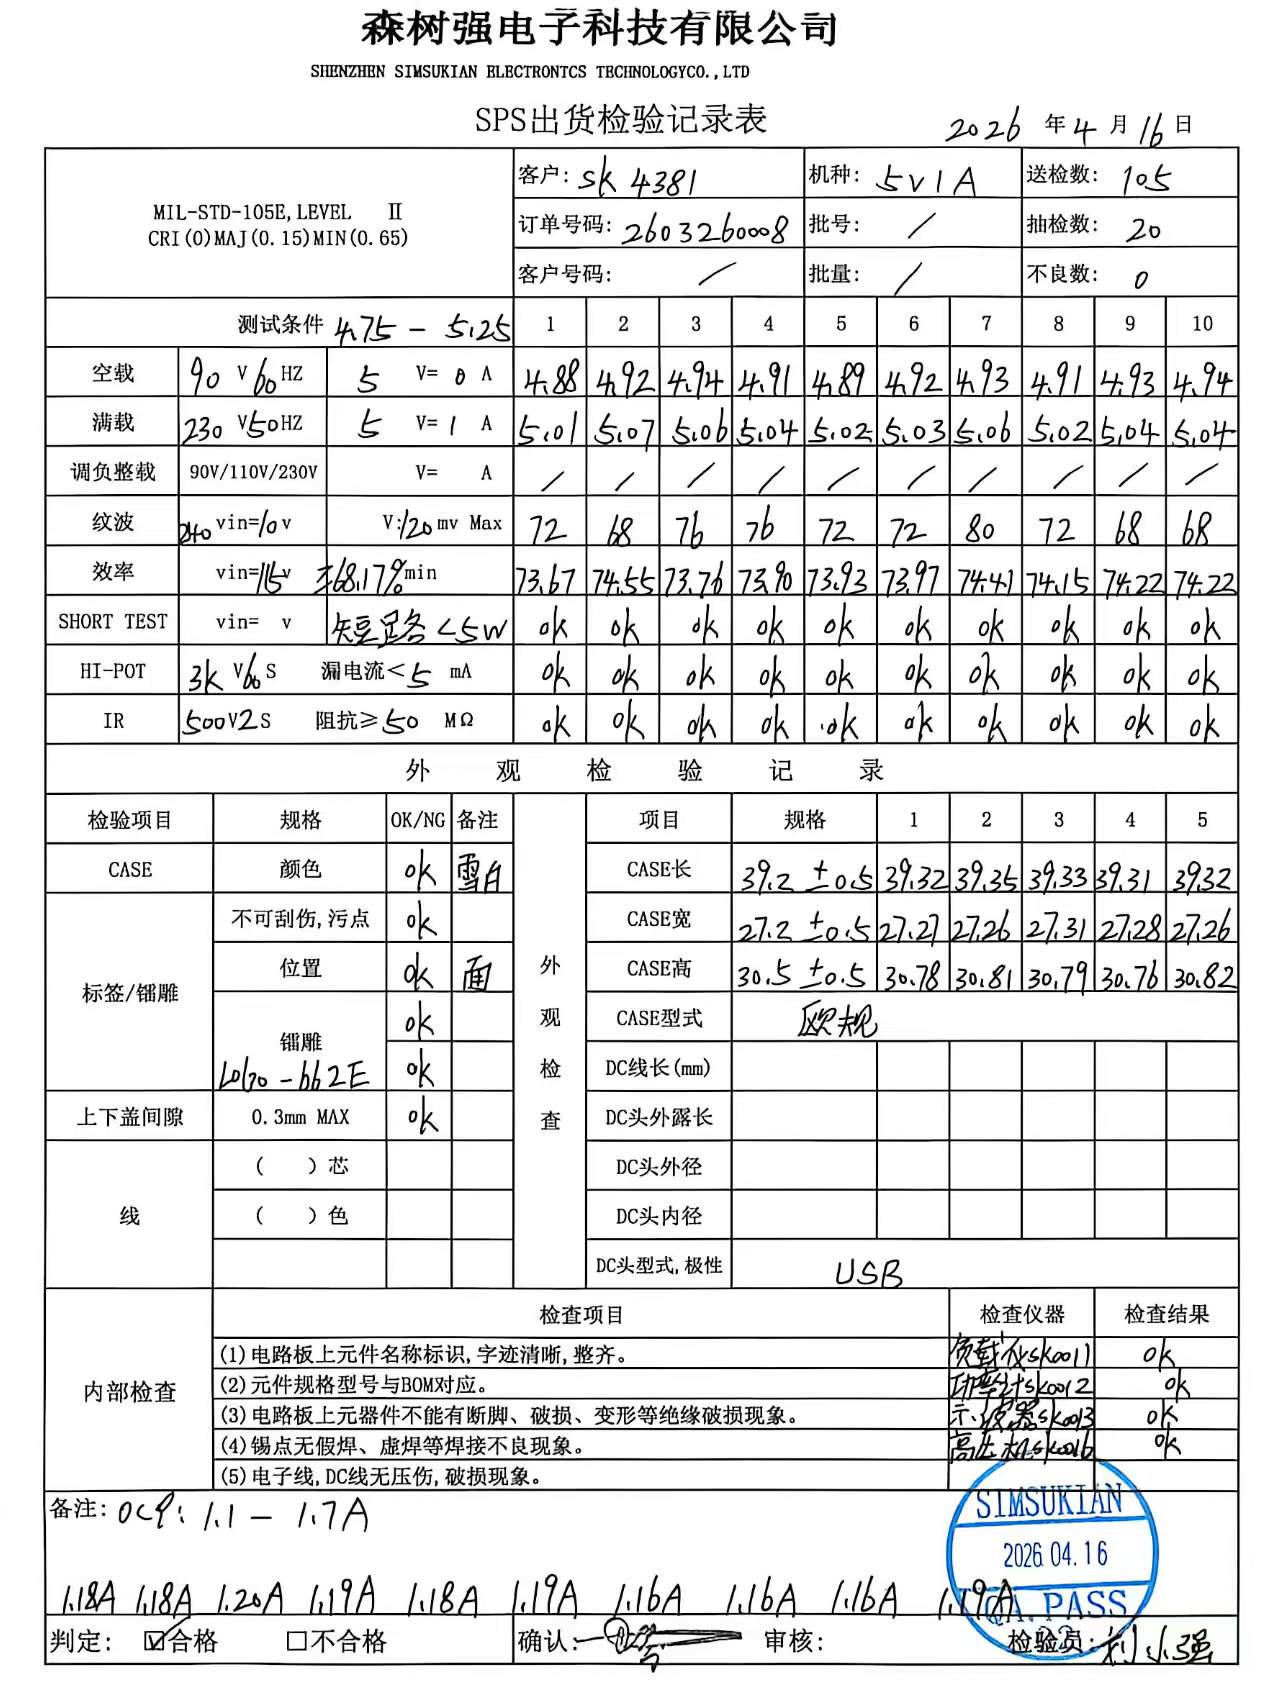 森树强电子科技有限公司
SHENZHEN SIMSUKIAN ELECTRONTCS TECHNOLOGYCO.,LTD
SPS出货检验记录表 2026 年 4 月 16 日
MIL-STD-105E,LEVEL Ⅱ
CRI(0)MAJ(0.15)MIN(0.65)
客户: SK4381 机种: 5V1A 送检数: 105
订单号码: 2603260008 批号: / 抽检数: 20
客户号码: / 批量: / 不良数: 0
测试条件 4.75 - 5.25 1 2 3 4 5 6 7 8 9 10
空载 90 V 60 HZ 5 V= 0 A 4.88 4.92 4.94 4.91 4.89 4.92 4.93 4.91 4.93 4.94
满载 230 V 50 HZ 5 V= 1 A 5.01 5.07 5.06 5.04 5.02 5.03 5.06 5.02 5.04 5.04
调负整载 90V/110V/230V V= A / / / / / / / / / /
纹波 240 vin=10 v V:120 mv Max 72 68 76 76 72 72 80 72 68 68
效率 vin=115 v ≥68.17% min 73.67 74.55 73.76 73.90 73.93 73.97 74.41 74.15 74.22 74.22
SHORT TEST vin= v 短路<5W ok ok ok ok ok ok ok ok ok ok
HI-POT 3K V 60 S 漏电流< 5 mA ok ok ok ok ok ok ok ok ok ok
IR 500 V 2 S 阻抗≥ 50 MΩ ok ok ok ok ok ok ok ok ok ok
外 观 检 验 记 录
检验项目 规格 OK/NG 备注 外观检查 项目 规格 1 2 3 4 5
CASE 颜色 ok 雪白 CASE长 39.2 ±0.5 39.32 39.35 39.33 39.31 39.32
标签/镭雕 不可刮伤,污点 ok CASE宽 27.2 ±0.5 27.27 27.26 27.31 27.28 27.26
位置 ok 面 CASE高 30.5 ±0.5 30.78 30.81 30.79 30.76 30.82
镭雕 ok CASE型式 欧规
logo-662E ok DC线长(mm)
上下盖间隙 0.3mm MAX ok DC头外露长
线 ( )芯 DC头外径
( )色 DC头内径
DC头型式,极性 USB
内部检查 检查项目 检查仪器 检查结果
(1)电路板上元件名称标识,字迹清晰,整齐。 负载仪SK0011 ok
(2)元件规格型号与BOM对应。 功率计SK0012 ok
(3)电路板上元器件不能有断脚、破损、变形等绝缘破损现象。 示波器SK0013 ok
(4)锡点无假焊、虚焊等焊接不良现象。 高压机SK0016 ok
(5)电子线,DC线无压伤,破损现象。
备注: OCP: 1.1 - 1.7A
SIMSUKIAN
2026.04.16
1.18A 1.18A 1.20A 1.19A 1.18A 1.19A 1.16A 1.16A 1.16A 1.19A
QA.PASS
判定: ☑合格 □不合格 确认: 审核: 检验员: 刘小强